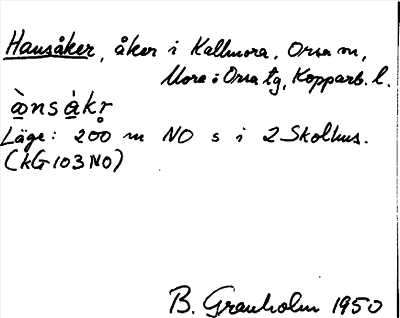 Hansåker, åker i Kallmora, Orsa sn,
Mora o Orsa tg, Kopparb. l.
ànsåkr
Läge: 200 m NO s i 2 Skolhus.
(kG103NO)
B. Granholm 1950